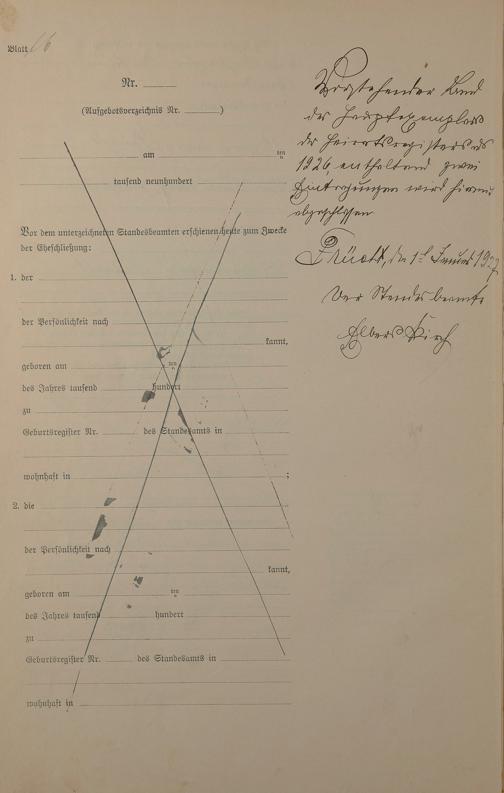 Blatt 16
Nr.
(Aufgebotsverzeichnis Nr. )
am ten
tausend neunhundert
Vor dem unterzeichneten Standesbeamten erschienen heute zum Zwecke
der Eheschließung:
1. der
der Persönlichkeit nach
kannt,
geboren am ten
des Jahres tausend hundert
zu
Geburtsregister Nr. des Standesamts in
wohnhaft in ;
2. die
der Persönlichkeit nach
kannt,
geboren am ten
des Jahres tausend hundert
zu
Geburtsregister Nr. des Standesamts in
wohnhaft in
Vorstehender Band
des Hauptexemplars
der Heiratsregisters
1926, enthaltend zwei
Eintragungen wird hiermit
abgeschlossen
den 1t Januar 1927
Der Standesbeamte